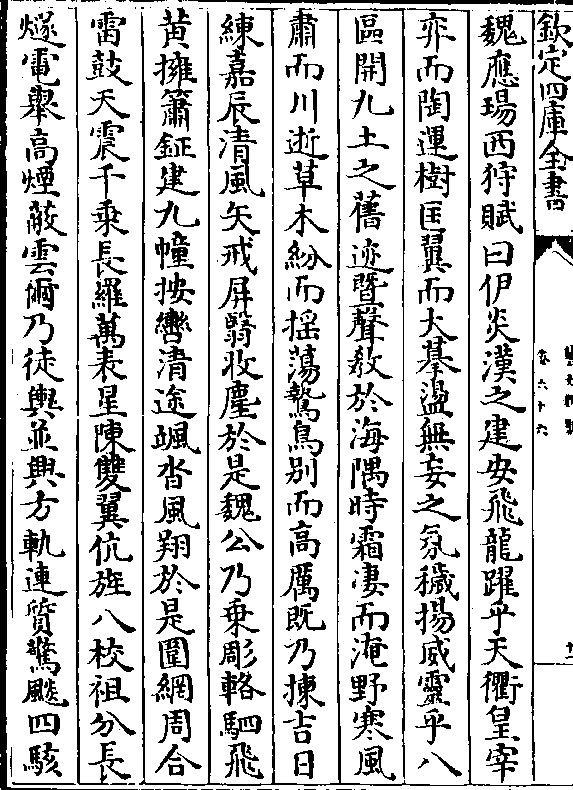 欽定四庫全書
卷六十六
魏應瑒西狩賦曰伊炎漢之建安飛龍躍乎天衢皇宰
弈而陶運樹匡翼而大摹盪無妄之氛穢揚威靈乎八
區開九土之舊迹暨聲教於海隅時霜淒而淹野寒風
肅而川逝草木紛而揺蕩鷙鳥别而高厲既乃揀吉日
練嘉辰清風矢戒屏翳收塵於是魏公乃乗彫輅駟飛
黄擁簫鉦建九幢按轡清途颯沓風翔於是圍網周合
雷鼓天震千乗長羅萬表星陳雙翼伉旌八校祖分長
燧電舉高煙蔽雲爾乃徒輿並興方軌連質驚飈四駭